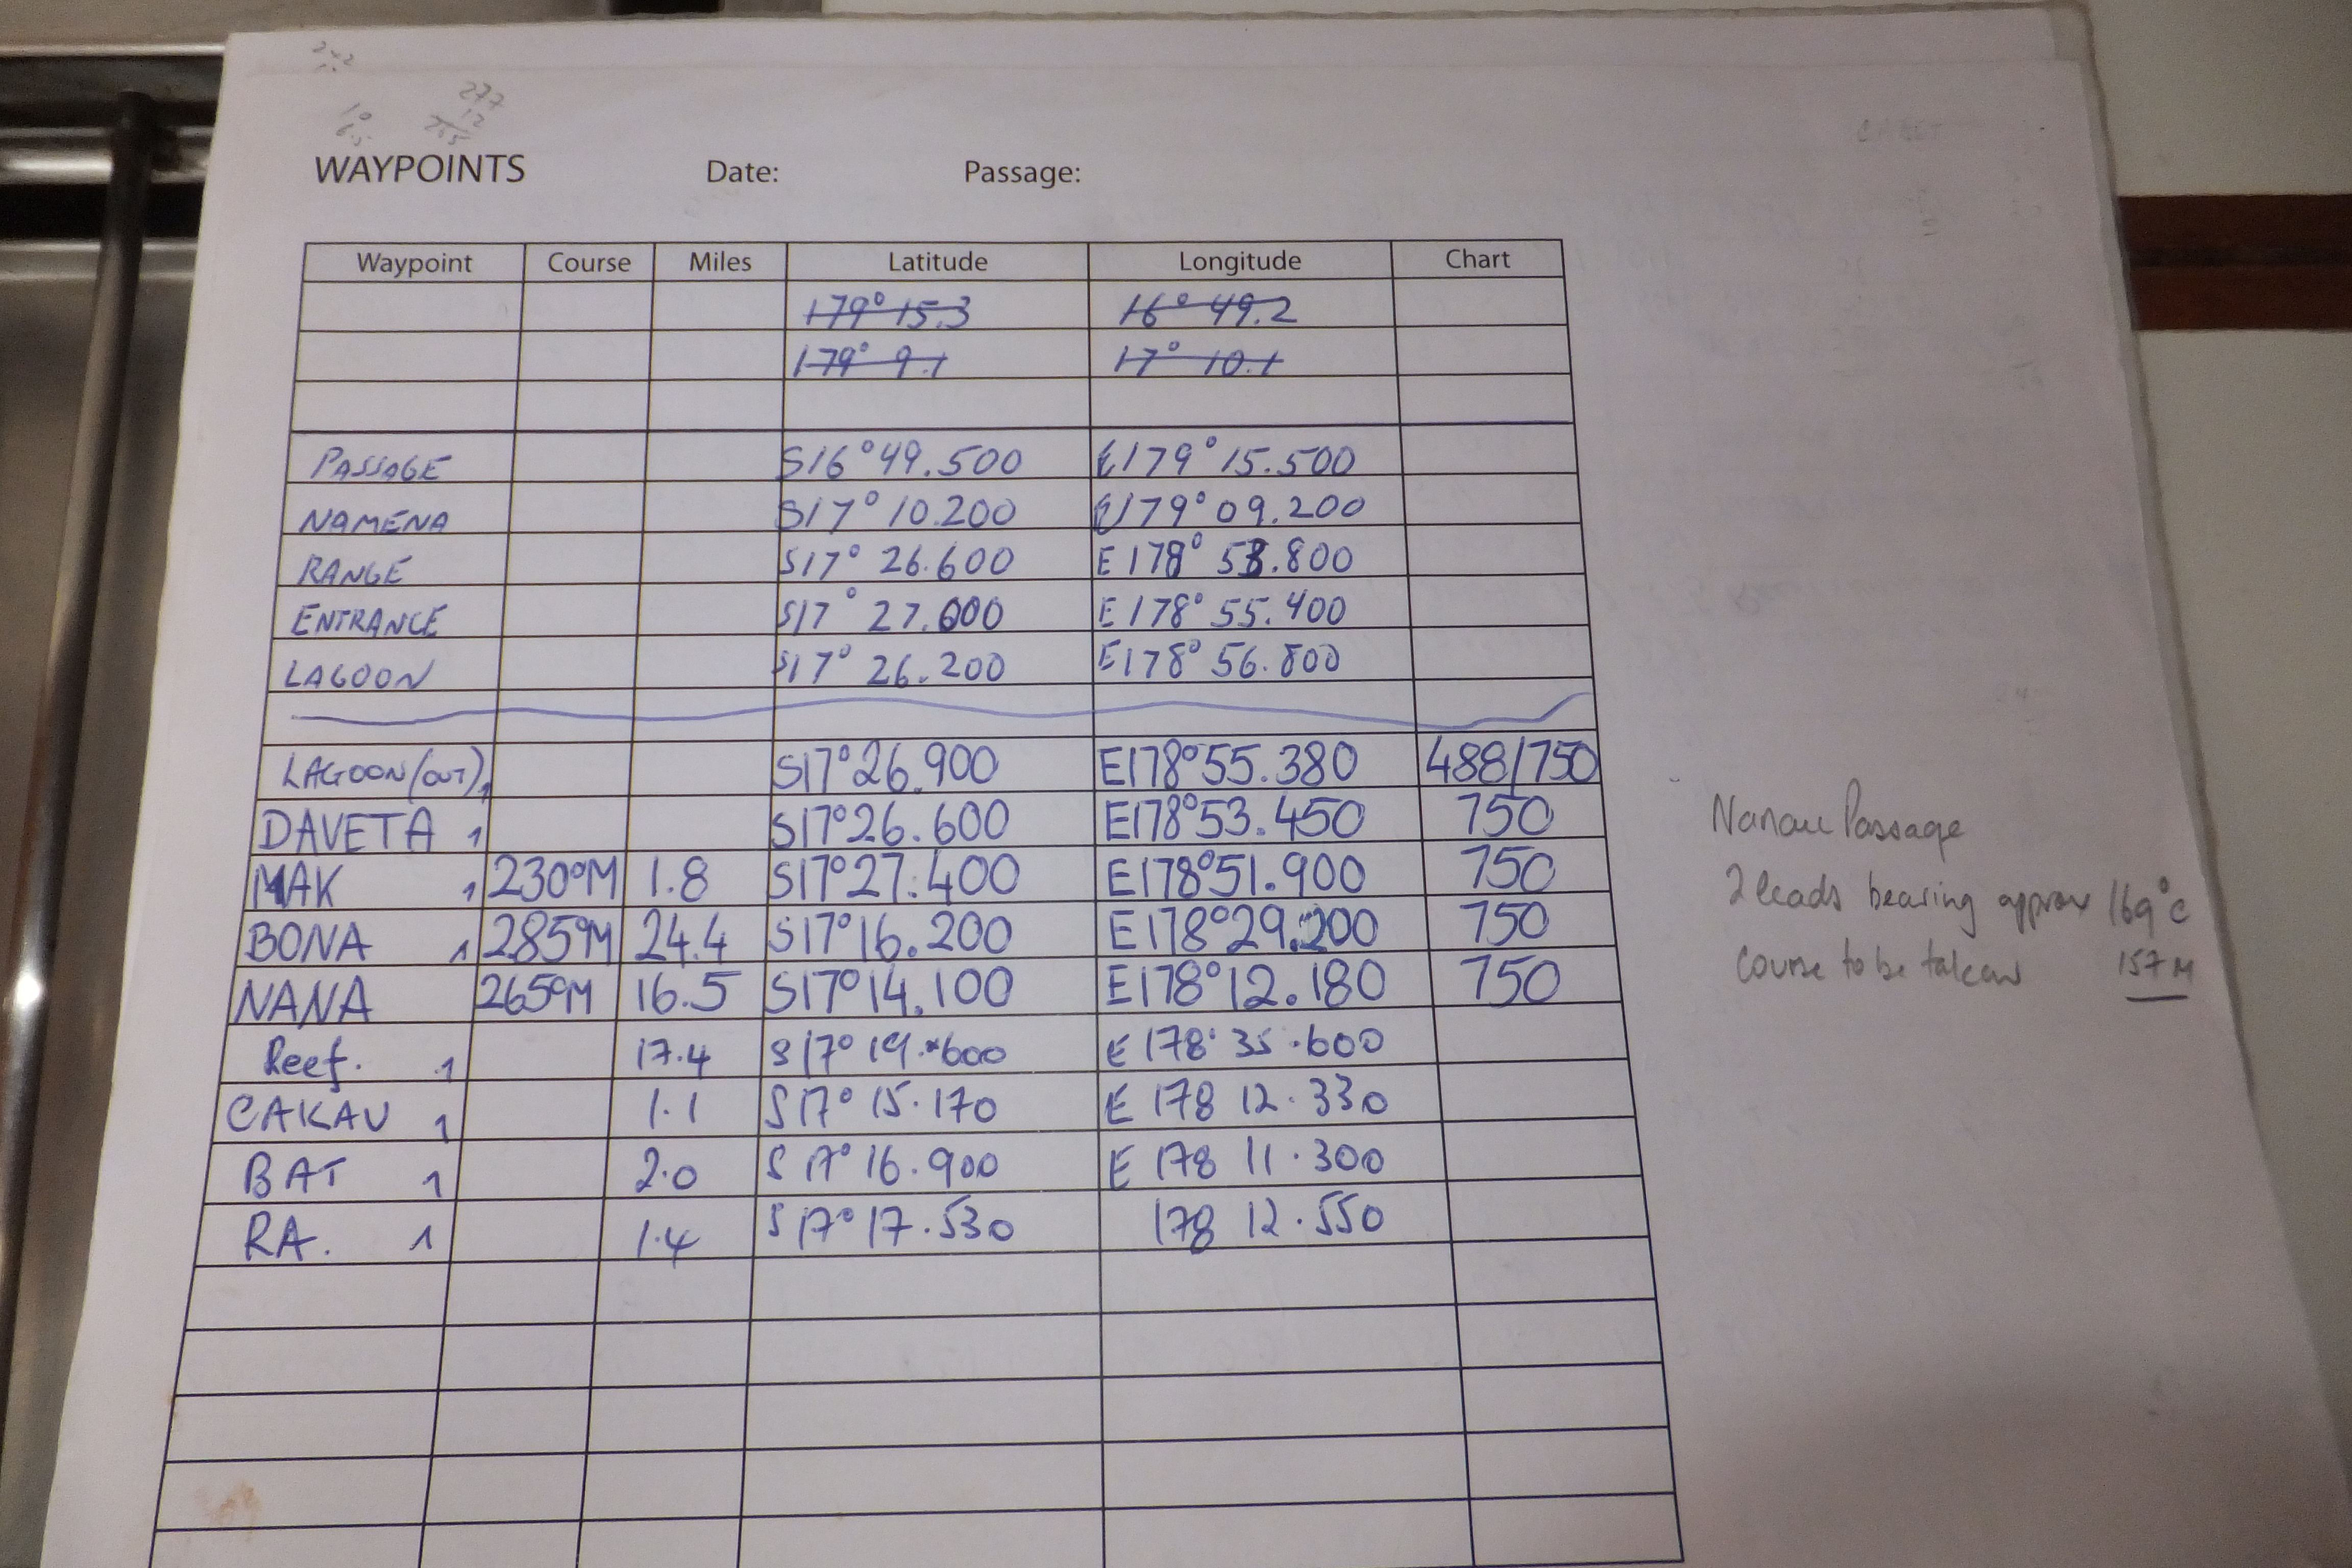 277
12
265
WAYPOINTS Date: Passage:
Waypoint Course Miles Latitude Longitude Chart
179° 15.3 16° 49.2
179° 9.1 17° 10.1
PASSAGE S16°49.500 E179°15.500
NAMENA S17°10.200 E179°09.200
RANGE S17° 26.600 E178° 53.800
ENTRANCE S17° 27.000 E178° 55.400
LAGOON S17° 26.200 E178° 56.800
LAGOON(OUT)1 S17°26.900 E178°55.380 488/750
DAVETA 1 S17°26.600 E178°53.450 750
MAK 1 230°M 1.8 S17°27.400 E178°51.900 750
BONA 1 285°M 24.4 S17°16.200 E178°29.200 750
NANA 265°M 16.5 S17°14.100 E178°12.180 750
Reef. 1 17.4 S17° 19.600 E 178° 35.600
CAKAU 1 1.1 S17° 15.170 E 178 12.330
BAT 1 2.0 S 17° 16.900 E 178 11.300
RA. 1 1.4 S 17° 17.530 178 12.550
Passage
2 leads bearing approx 169°C
Course to be taken 157M